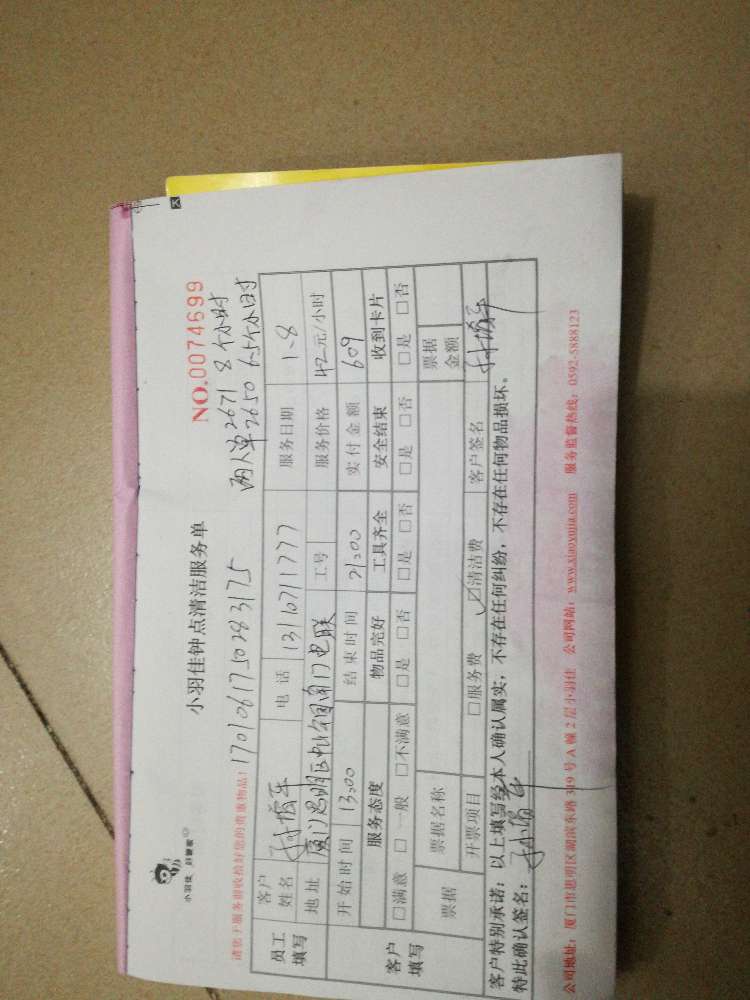 小羽佳 好管家
小羽佳钟点清洁服务单
NO.0074699
请您于服务前收拾好您的贵重物品!
1701061750283175
两人单2671 8个小时
2650 6.5个小时
员工填写
客户姓名
电话 13110711777
服务日期 1-8
地址 厦门思明区
工号
服务价格 42元/小时
开始时间 13:00
结束时间 21:00
实付金额 609
客户填写
服务态度 物品完好 工具齐全 安全结束 收到卡片
□满意 □一般 □不满意 □是 □否 □是 □否 □是 □否 □是 □否
票据 票据名称 票据金额
开票项目 □服务费 ☑清洁费 客户签名
客户特别承诺:以上填写经本人确认属实,不存在任何纠纷,不存在任何物品损坏。
特此确认签名:
公司地址:厦门市思明区湖滨东路319号A幢2层小羽佳 公司网站:www.xiaoyujia.com 服务监督热线:0592-5888123